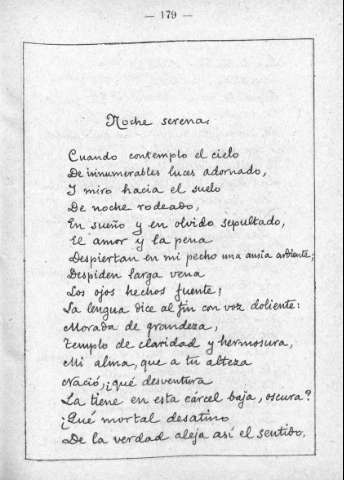 — 179 —
Noche serena.
Cuando contemplo el cielo
De innumerables luces adornado,
Y miro hacia el suelo
De noche rodeado,
En sueño y en olvido sepultado,
El amor y la pena
Despiertan en mi pecho una ansia ardiente;
Despiden larga vena
Los ojos hechos fuente;
La lengua dice al fin con voz doliente:
Morada de grandeza,
Templo de claridad y hermosura,
Mi alma, que a tu alteza
Nació, ¿qué desventura
La tiene en esta cárcel baja, oscura?
¿Qué mortal desatino
De la verdad aleja así el sentido,